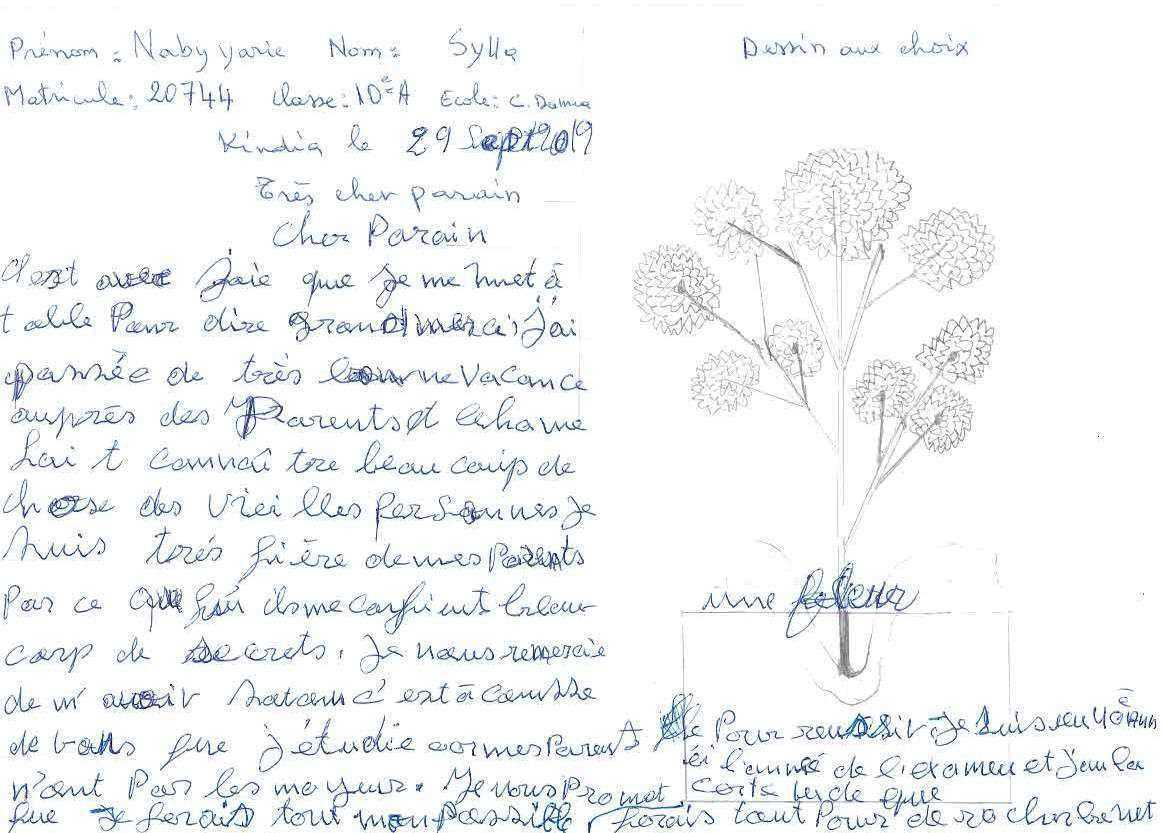 Prénom : Nabyyarie Nom : Sylla
Matricule : 20744 classe : 10è A Ecole : C. Damia
Kindia le 29 Sept 2019
Très cher parain
Cher Parain
C'est avec joie que je me met à
table Pour dire grand merci, j'ai
passée de très bonne vacance
auprès des Parents et
fait connaître beaucoup de
chose des vieilles personnes je
suis trés fière de mes Parents
Par ce qu ils me confient beau
corp de secrets. Je vous remercie
de m' avoir c'est à cause
de vous que j'étudie car mes Parents
n'ont Pas les moyens. Je vous Promet
que je ferais tout mon Possible
Dessin aux choix
une fleur
Pour reussir. Je suis en 10è Ann
éi l'année de l'examen et j'ai la
certitude que
ferais tout Pour decrocher